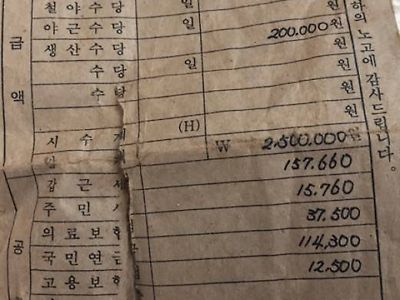 철야수당 일 원
야근수당 일 200.000원
생산수당 원
수당 일 원
수당 원
원
(H)
계 W 2,500,000원
갑근세 157.660
주민 15.760
의료보험 37.500
국민연금 114,300
고용보험 12.500
금액
공
하의 노고에 감사드립니다.